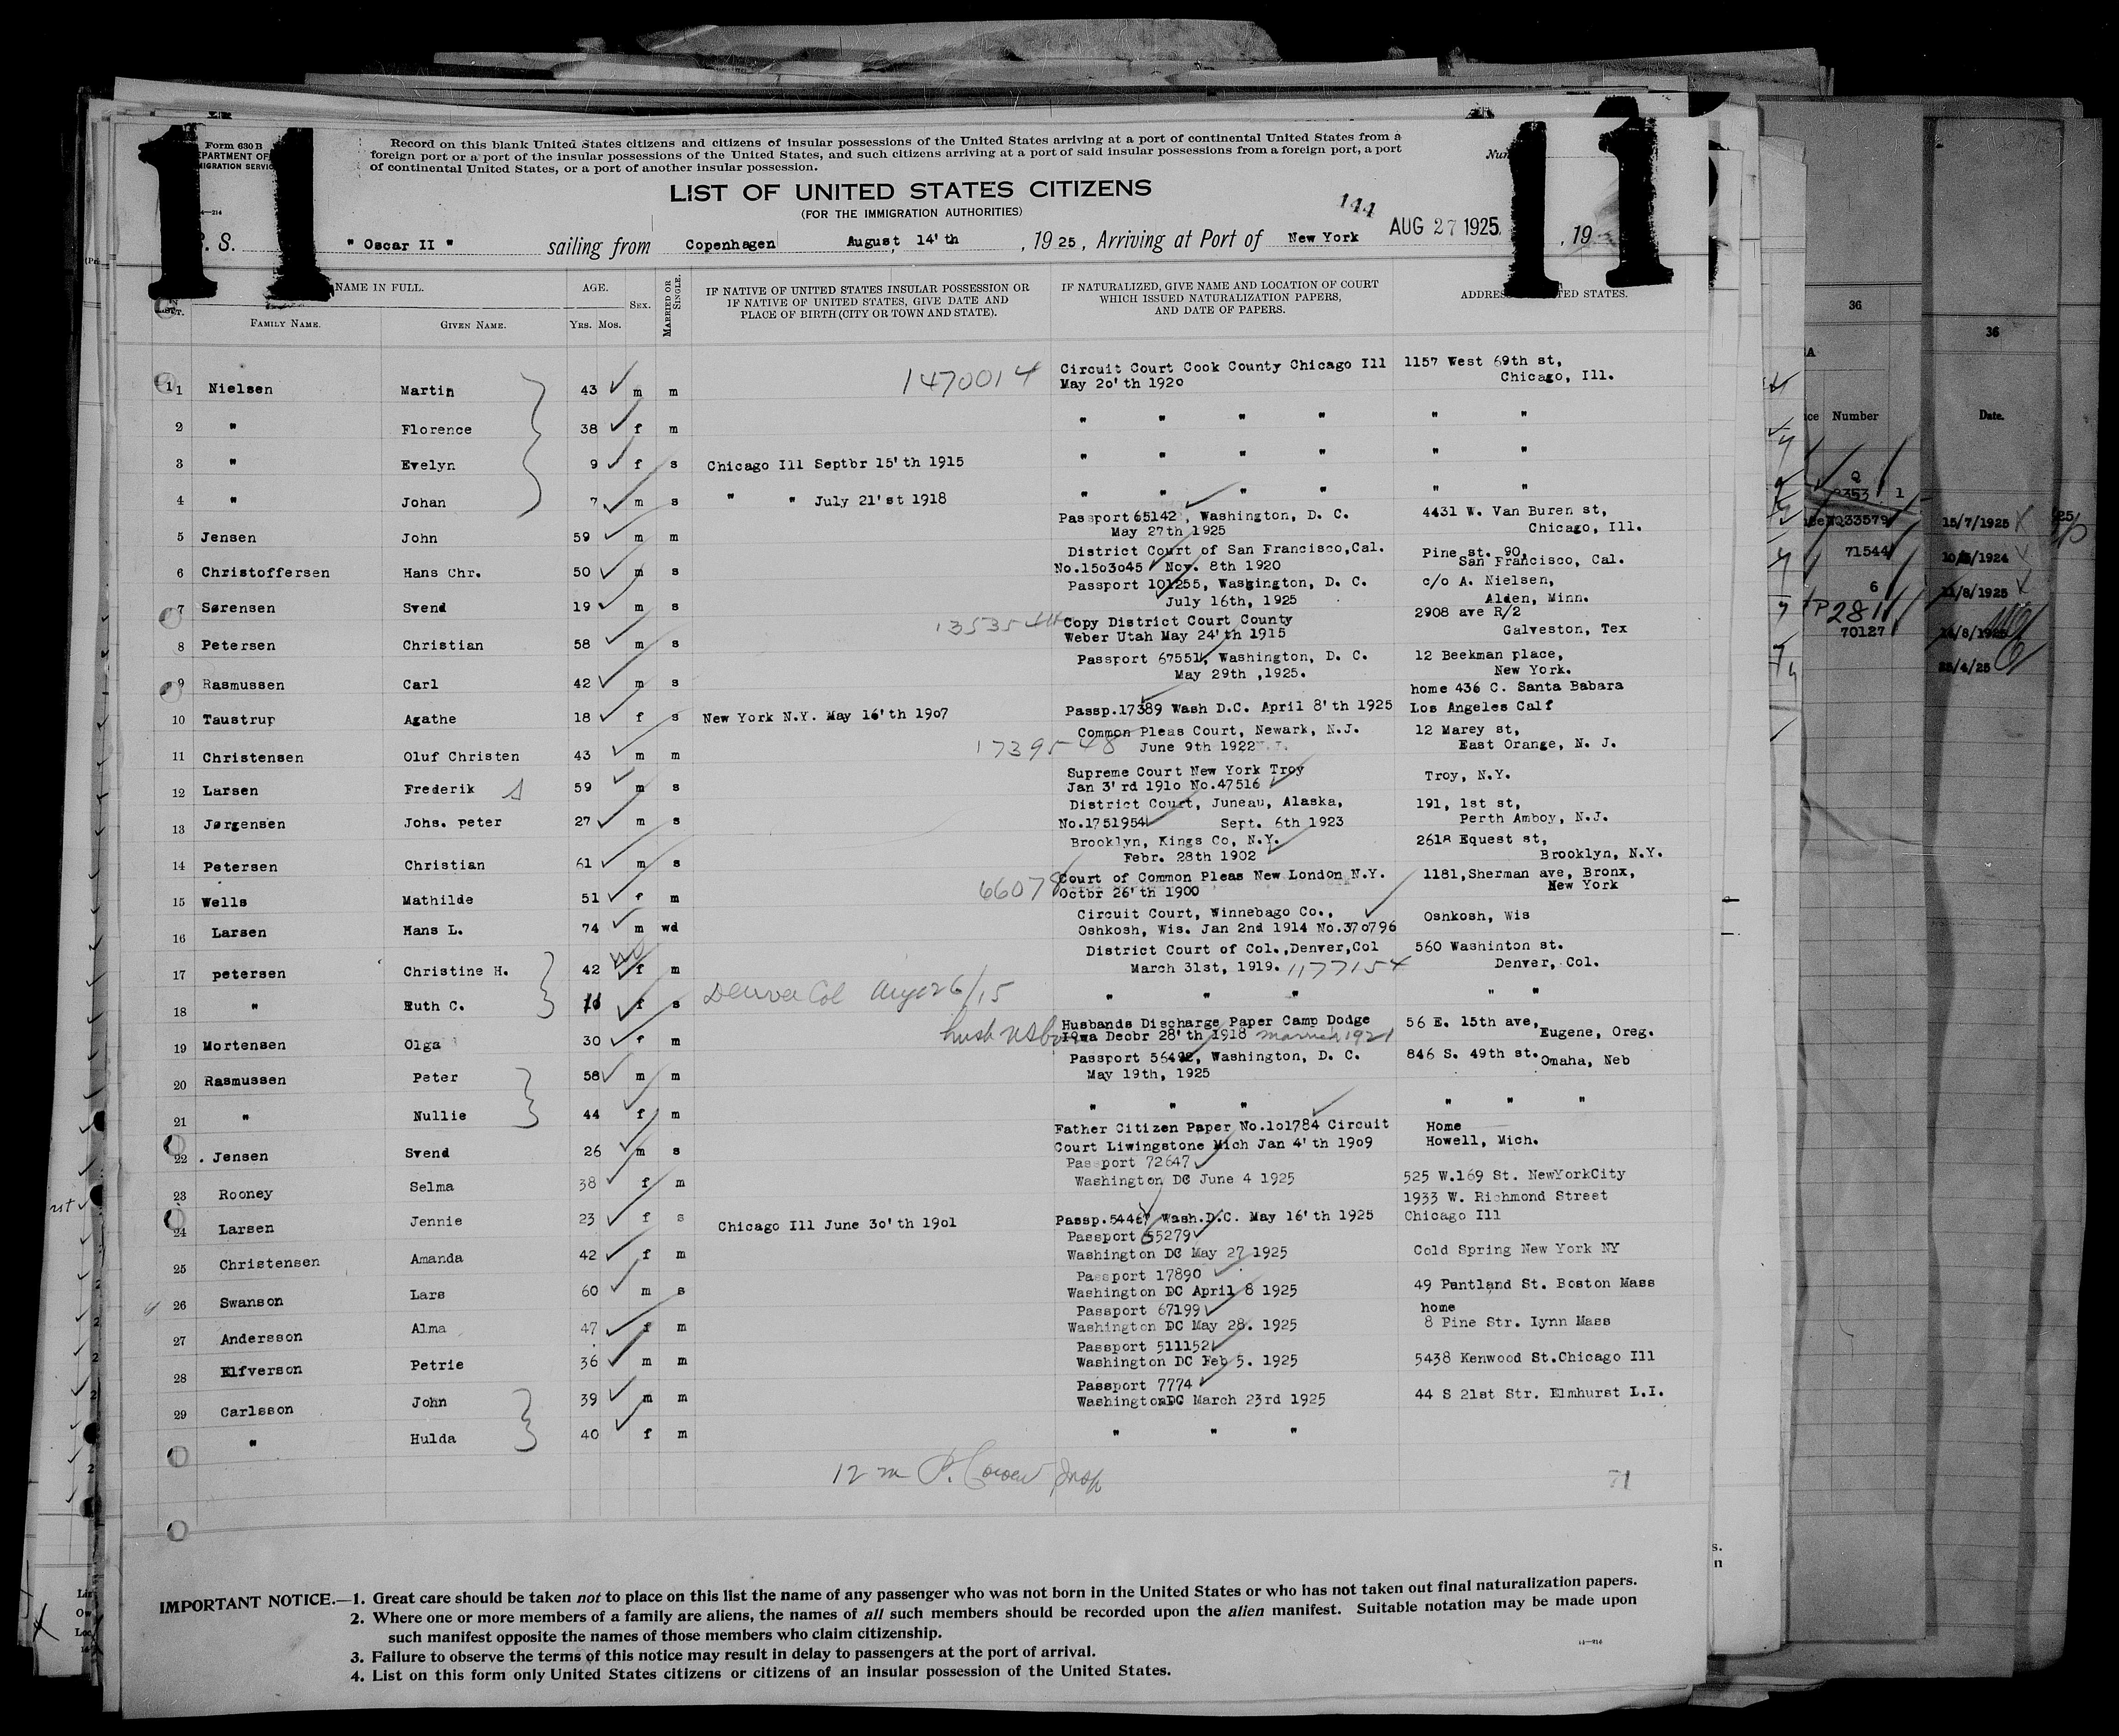 11 11
Form 630 B
Record on this blank United States citizens and citizens of insular possessions of the United States arriving at a port of continental United States from a
foreign port or a port of the insular possessions of the United States, and such citizens arriving at a port of said insular possessions from a foreign port, a port
of continental United States, or a port of another insular possession.
LIST OF UNITED STATES CITIZENS
(FOR THE IMMIGRATION AUTHORITIES)
144
S. " Oscar II " sailing from Copenhagen August 14'th , 1925, Arriving at Port of New York AUG 27 1925 , 19
NAME IN FULL. AGE. SEX. MARRIED OR SINGLE. IF NATIVE OF UNITED STATES INSULAR POSSESSION OR IF NATIVE OF UNITED STATES, GIVE DATE AND PLACE OF BIRTH (CITY OR TOWN AND STATE). IF NATURALIZED, GIVE NAME AND LOCATION OF COURT WHICH ISSUED NATURALIZATION PAPERS, AND DATE OF PAPERS.
FAMILY NAME. GIVEN NAME. YRS. MOS.
1 Nielsen Martin 43 m m 1470014 Circuit Court Cook County Chicago Ill May 20'th 1920 1157 West 69th st, Chicago, Ill.
2 " Florence 38 f m " " " " " "
3 " Evelyn 9 f s Chicago Ill Septbr 15'th 1915 " " " " " "
4 " Johan 7 m s " " July 21'st 1918 " " " " " "
5 Jensen John 59 m m Passport 65142, Washington, D. C. May 27th 1925 4431 W. Van Buren st, Chicago, Ill.
6 Christoffersen Hans Chr. 50 m s District Court of San Francisco,Cal. No.1503045 Nov. 8th 1920 Pine st. 90, San Francisco, Cal.
7 Sørensen Svend 19 m s Passport 101255, Washington, D. C. July 16th, 1925 c/o A. Nielsen, Alden, Minn.
8 Petersen Christian 58 m s Copy District Court County Weber Utah May 24'th 1915 2908 ave R/2 Galveston, Tex
9 Rasmussen Carl 42 m s Passport 67551, Washington, D. C. May 29th ,1925. 12 Beekman place, New York.
10 Taustrup Agathe 18 f s New York N.Y. May 16'th 1907 Passp.17389 Wash D.C. April 8'th 1925 home 436 C. Santa Babara Los Angeles Calf
11 Christensen Oluf Christen 43 m m 1739548 Common Pleas Court, Newark, N.J. June 9th 1922 12 Marey st, East Orange, N. J.
12 Larsen Frederik 59 m s Supreme Court New York Troy Jan 3'rd 1910 No.47516 Troy, N.Y.
13 Jørgensen Johs. peter 27 m s District Court, Juneau, Alaska, No.1751954 Sept. 6th 1923 191, 1st st, Perth Amboy, N.J.
14 Petersen Christian 61 m s Brooklyn, Kings Co, N.Y. Febr. 28th 1902 2618 Equest st, Brooklyn, N.Y.
15 Wells Mathilde 51 f m 66078 Court of Common Pleas New London N.Y. Octbr 26'th 1900 1181,Sherman ave, Bronx, New York
16 Larsen Hans L. 74 m wd Circuit Court, Winnebago Co., Oshkosh, Wis. Jan 2nd 1914 No.370796 Oshkosh, Wis
17 petersen Christine H. 42 f m District Court of Col.,Denver,Col March 31st, 1919. 1177154 560 Washinton st. Denver, Col.
18 " Ruth C. f s Denver Col Aug 26/15 " " " " "
19 Mortensen Olga 30 f m Husbands Discharge Paper Camp Dodge Iowa Decbr 28'th 1918 married 1921 56 E. 15th ave, Eugene, Oreg.
20 Rasmussen Peter 58 m m Passport 56492, Washington, D. C. May 19th, 1925 846 S. 49th st. Omaha, Neb
21 " Nullie 44 f m " " " " " "
22 . Jensen Svend 26 m s Father Citizen Paper No.101784 Circuit Court Liwingstone Mich Jan 4'th 1909 Home Howell, Mich.
23 Rooney Selma 38 f m Passport 72647 Washington DC June 4 1925 525 W.169 St. NewYorkCity
24 Larsen Jennie 23 f s Chicago Ill June 30'th 1901 Passp.54467 Wash.D.C. May 16'th 1925 1933 W. Richmond Street Chicago Ill
25 Christensen Amanda 42 f m Passport 65279 Washington DC May 27 1925 Cold Spring New York NY
26 Swanson Lars 60 m s Passport 17890 Washington DC April 8 1925 49 Pentland St. Boston Mass
27 Andersson Alma 47 f m Passport 67199 Washington DC May 28. 1925 home 8 Pine Str. Lynn Mass
28 Elfverson Petrie 36 m m Passport 511152 Washington DC Feb 5. 1925 5438 Kenwood St.Chicago Ill
29 Carlsson John 39 m m Passport 7774 Washington DC March 23rd 1925 44 S 21st Str. Elmhurst L.I.
" Hulda 40 f m " " "
71
IMPORTANT NOTICE.—1. Great care should be taken not to place on this list the name of any passenger who was not born in the United States or who has not taken out final naturalization papers.
2. Where one or more members of a family are aliens, the names of all such members should be recorded upon the alien manifest. Suitable notation may be made upon
such manifest opposite the names of those members who claim citizenship.
3. Failure to observe the terms of this notice may result in delay to passengers at the port of arrival.
4. List on this form only United States citizens or citizens of an insular possession of the United States.
36
36
Number
Date.
15/7/1925
71544
6
70127